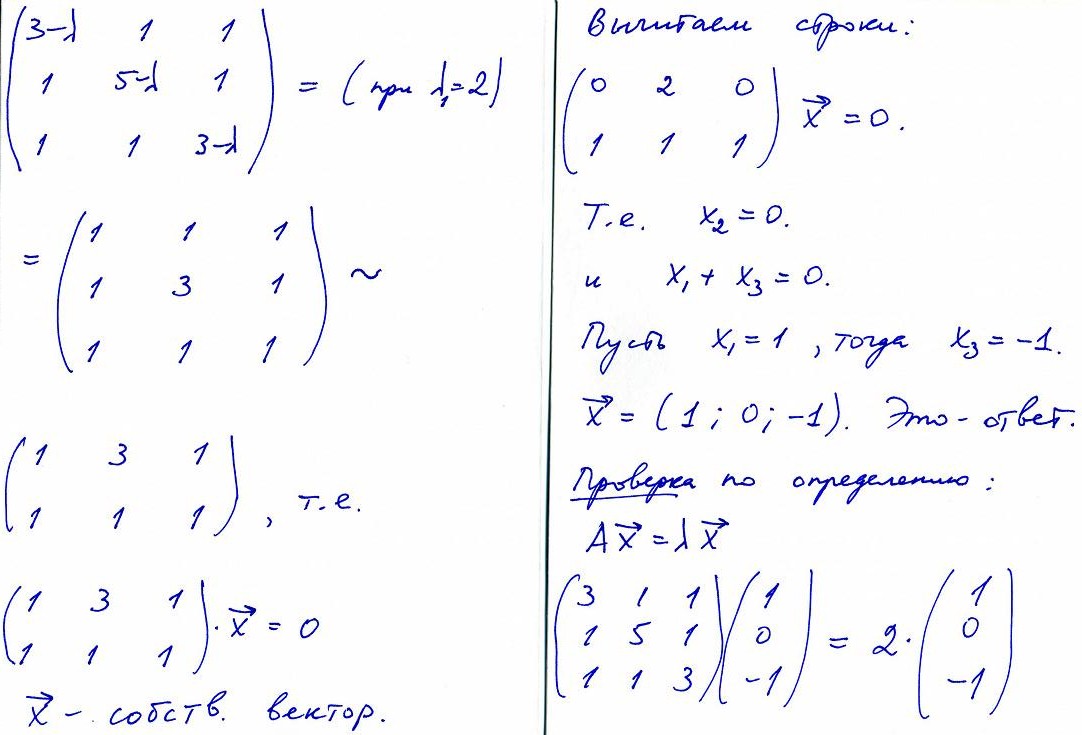 (3-λ 1 1
1 5-λ 1
1 1 3-λ) = (при λ₁=2)
= (1 1 1
1 3 1
1 1 1) ~
(1 3 1
1 1 1), т.е.
(1 3 1
1 1 1) · x⃗ = 0
x⃗ - собств. вектор.
Вычитаем строки:
(0 2 0
1 1 1) x⃗ = 0.
Т.е. x₂ = 0.
и x₁ + x₃ = 0.
Пусть x₁ = 1, тогда x₃ = -1.
x⃗ = (1; 0; -1). Это - ответ.
Проверка по определению:
Ax⃗ = λx⃗
(3 1 1
1 5 1
1 1 3)(1
0
-1) = 2·(1
0
-1)